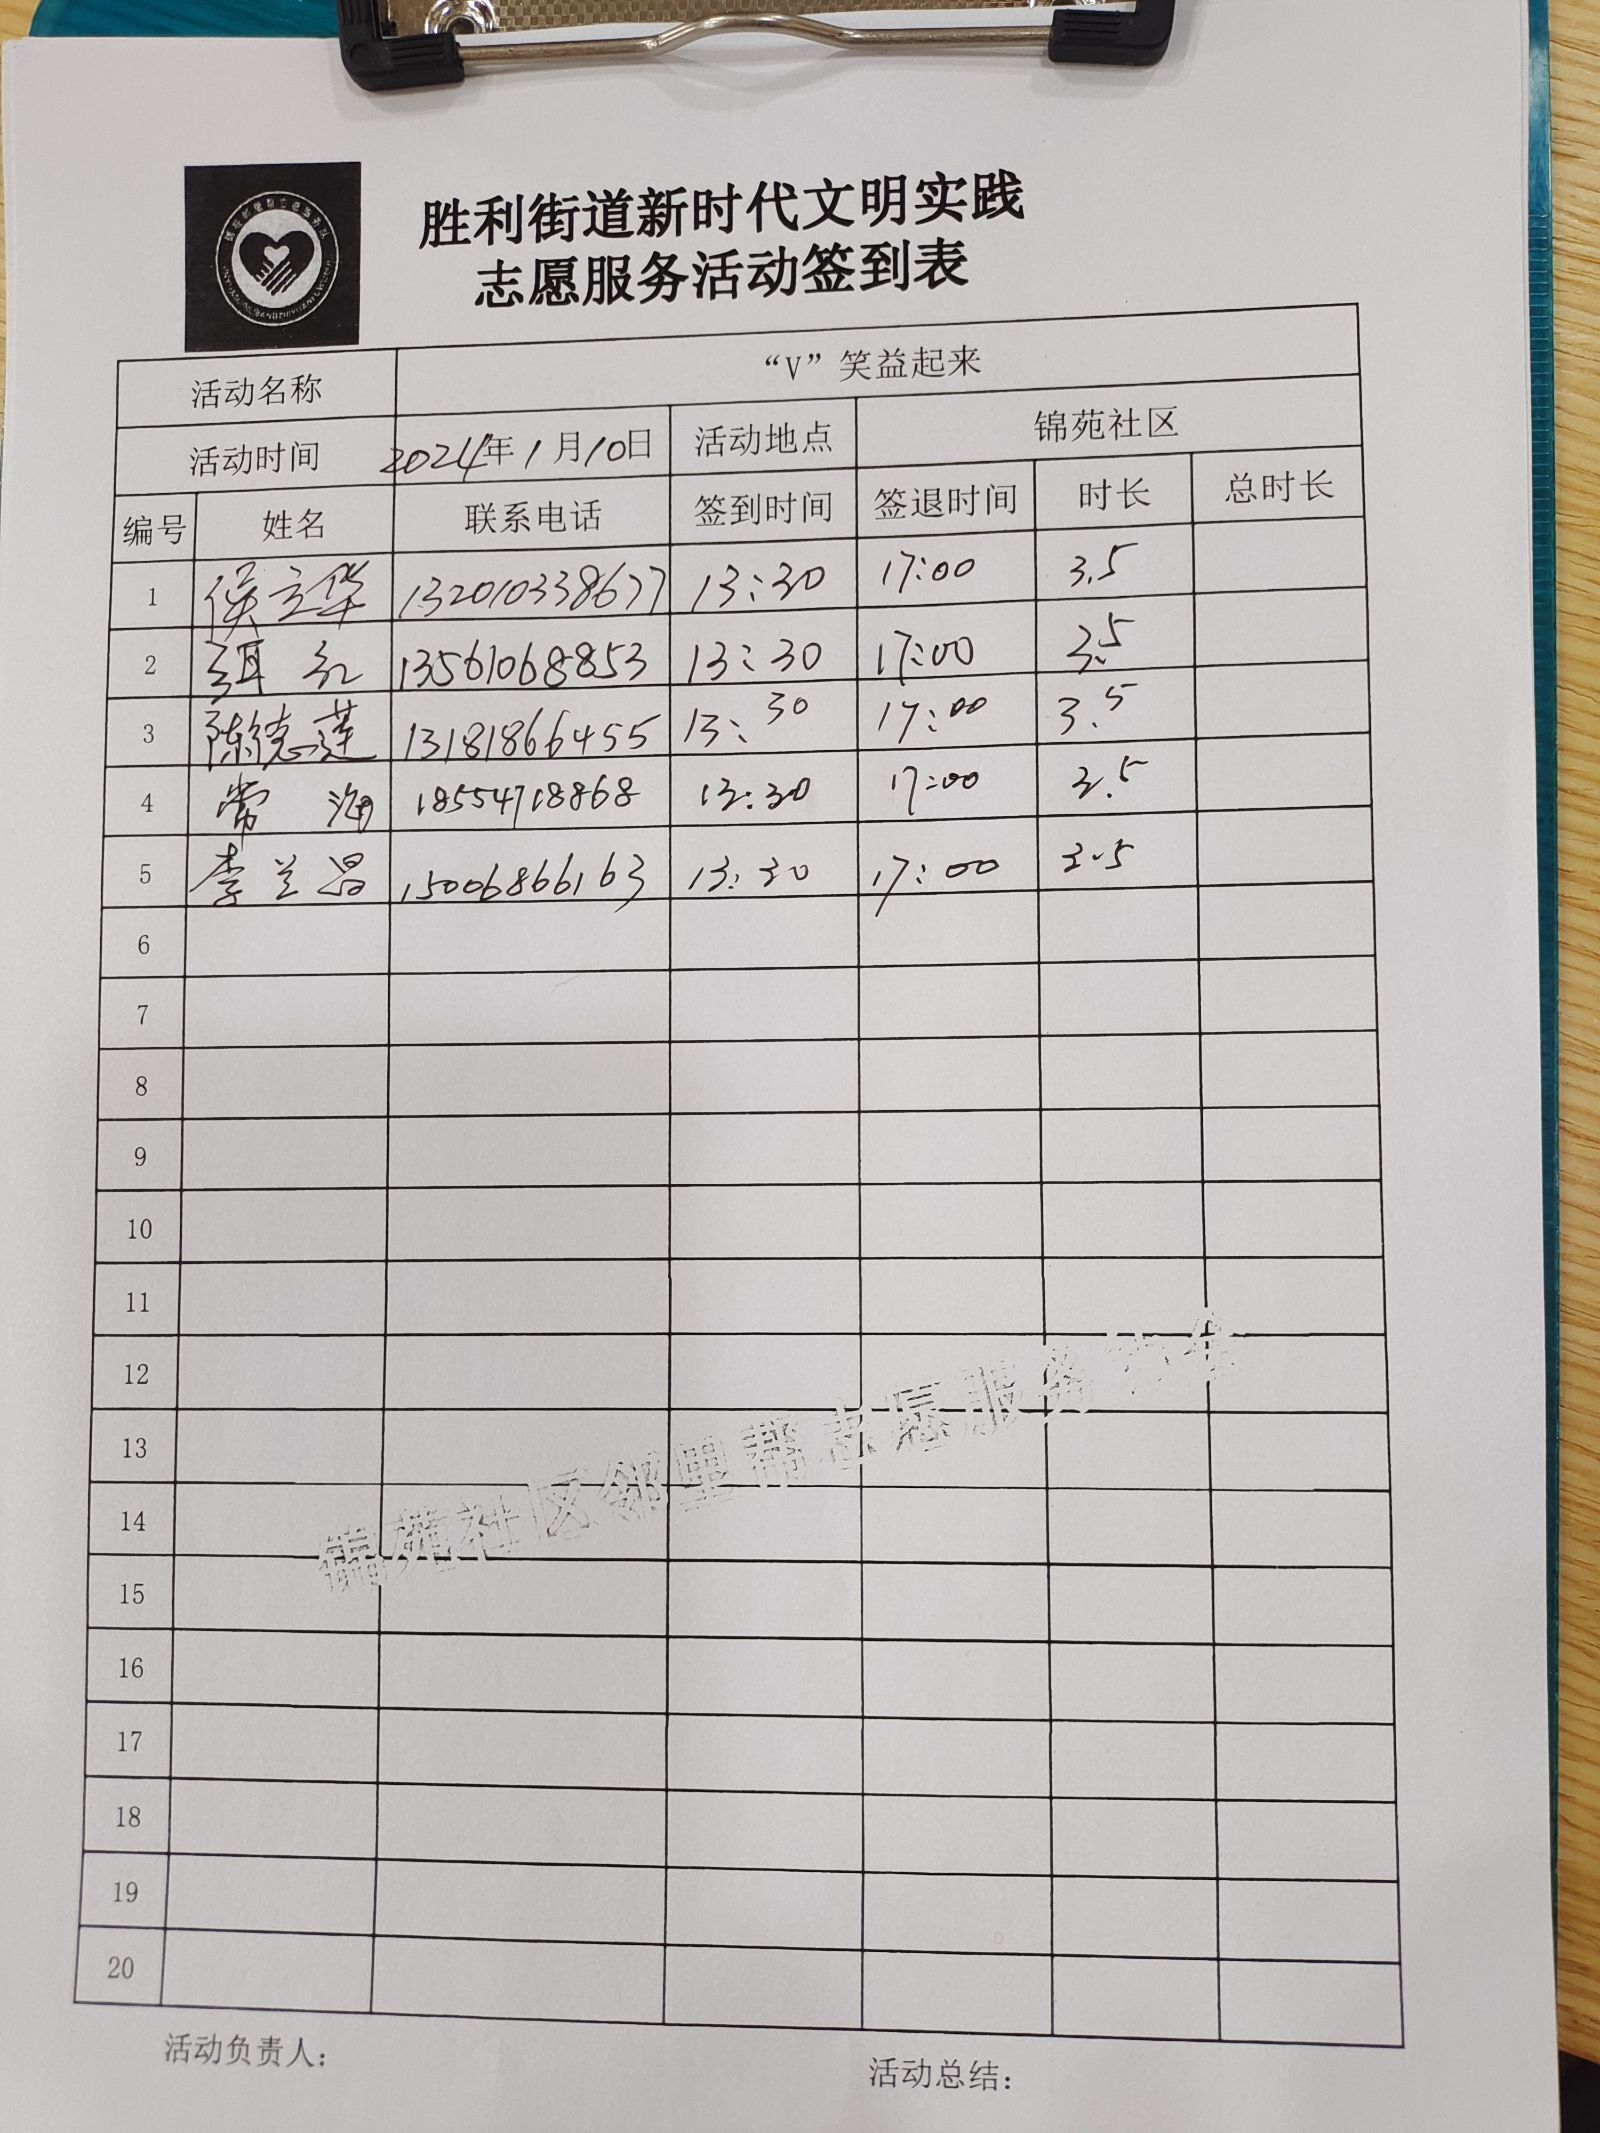 胜利街道新时代文明实践
志愿服务活动签到表
活动名称 “V”笑益起来
活动时间 2024年1月10日 活动地点 锦苑社区
编号 姓名 联系电话 签到时间 签退时间 时长 总时长
1 侯立华 132010338677 13:30 17:00 3.5
2 13561068853 13:30 17:00 3.5
3 陈德莲 13181866455 13:30 17:00 3.5
4 常海 18554718868 13:30 17:00 3.5
5 李兰昌 15006866163 13:30 17:00 3.5
6
7
8
9
10
11
12
13
14
15
16
17
18
19
20
锦苑社区邻里帮志愿服务
活动负责人：
活动总结：